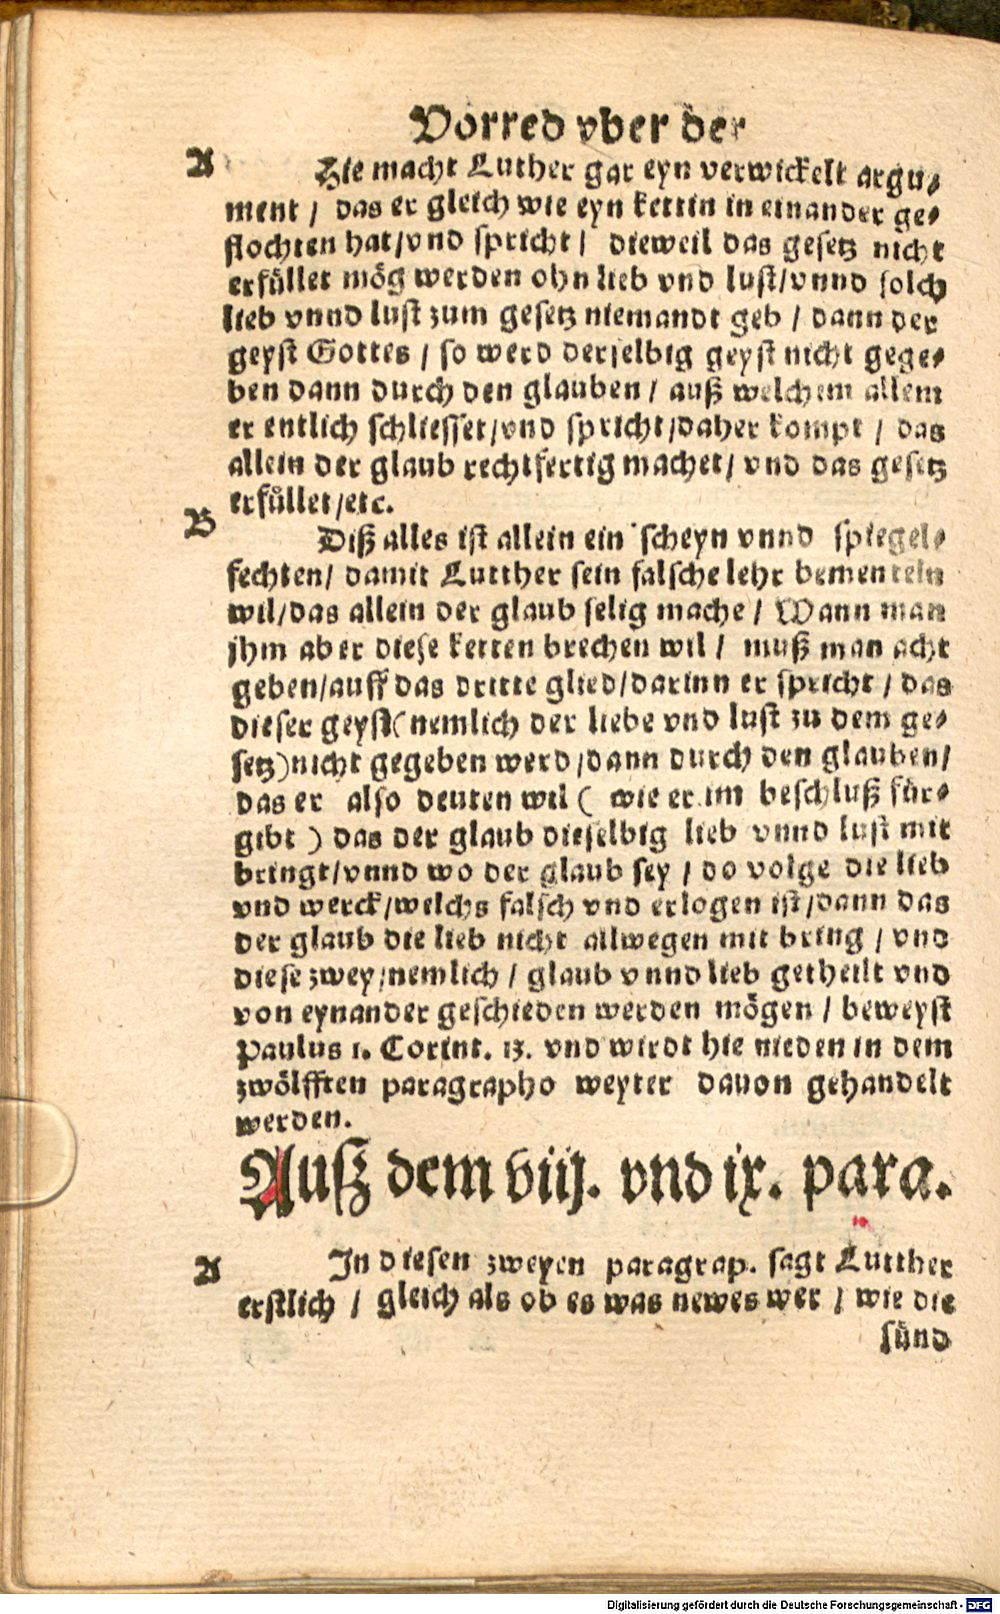 Vorred vber der
A
Hie macht Luther gar eyn verwickelt argu⸗
ment / das er gleich wie eyn kettin in einander ge⸗
flochten hat/vnd spricht / dieweil das gesetz nicht
erfüllet mög werden ohn lieb vnd lust/vnnd solch
lieb vnnd lust zum gesetz niemandt geb / dann der
geyst Gottes / so werd derselbig geyst nicht gege⸗
ben dann durch den glauben / auß welchem allem
er entlich schliesset/vnd spricht/daher kompt / das
allein der glaub rechtfertig machet/ vnd das gesetz
erfüllet/etc.
B
Diß alles ist allein ein scheyn vnnd spiegel⸗
fechten/ damit Lutther sein falsche lehr bementeln
wil/das allein der glaub selig mache / Wann man
jhm aber diese ketten brechen wil / muß man acht
geben/auff das dritte glied/darinn er spricht / das
dieser geyst(nemlich der liebe vnd lust zu dem ge⸗
setz)nicht gegeben werd/dann durch den glauben/
das er also deuten wil ( wie er im beschluß für⸗
gibt ) das der glaub dieselbig lieb vnnd lust mit
bringt/vnnd wo der glaub sey / do volge die lieb
vnd werck/welchs falsch vnd erlogen ist/dann das
der glaub die lieb nicht allwegen mit bring / vnd
diese zwey/nemlich / glaub vnnd lieb getheilt vnd
von eynander geschieden werden mögen / beweyst
Paulus 1. Corint. 13. vnd wirdt hie nieden in dem
zwölfften paragrapho weyter dauon gehandelt
werden.
Auß dem viij. vnd ix. para.
A
In diesen zweyen paragrap. sagt Lutther
erstlich / gleich als ob es was newes wer / wie die
sünd
Digitalisierung gefördert durch die Deutsche Forschungsgemeinschaft - DFG